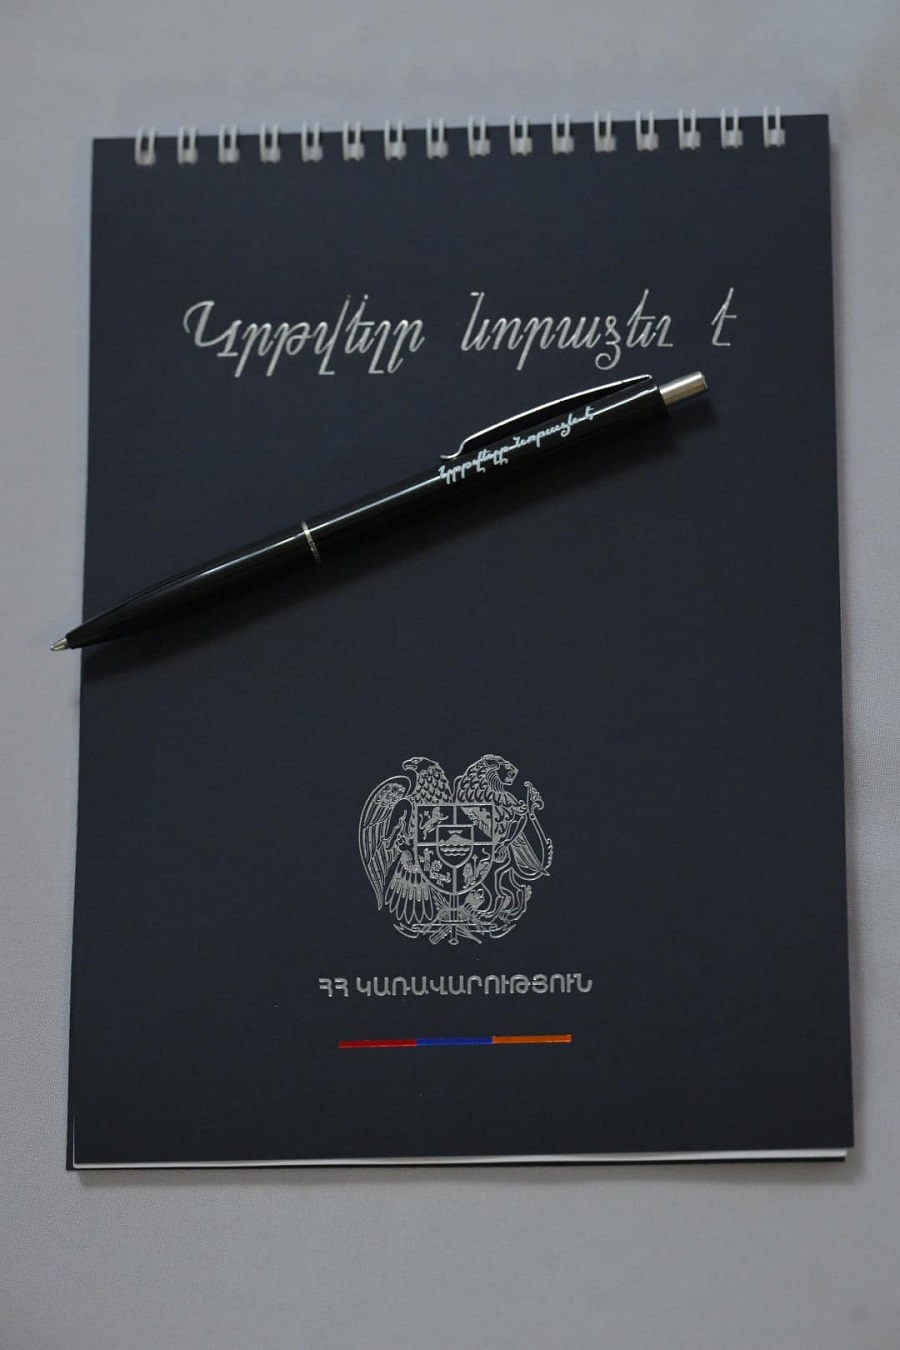 Կրթվելը նորաձեւ է
Կրթվելը նորաձեւ է
ՀՀ ԿԱՌԱՎԱՐՈՒԹՅՈՒՆ